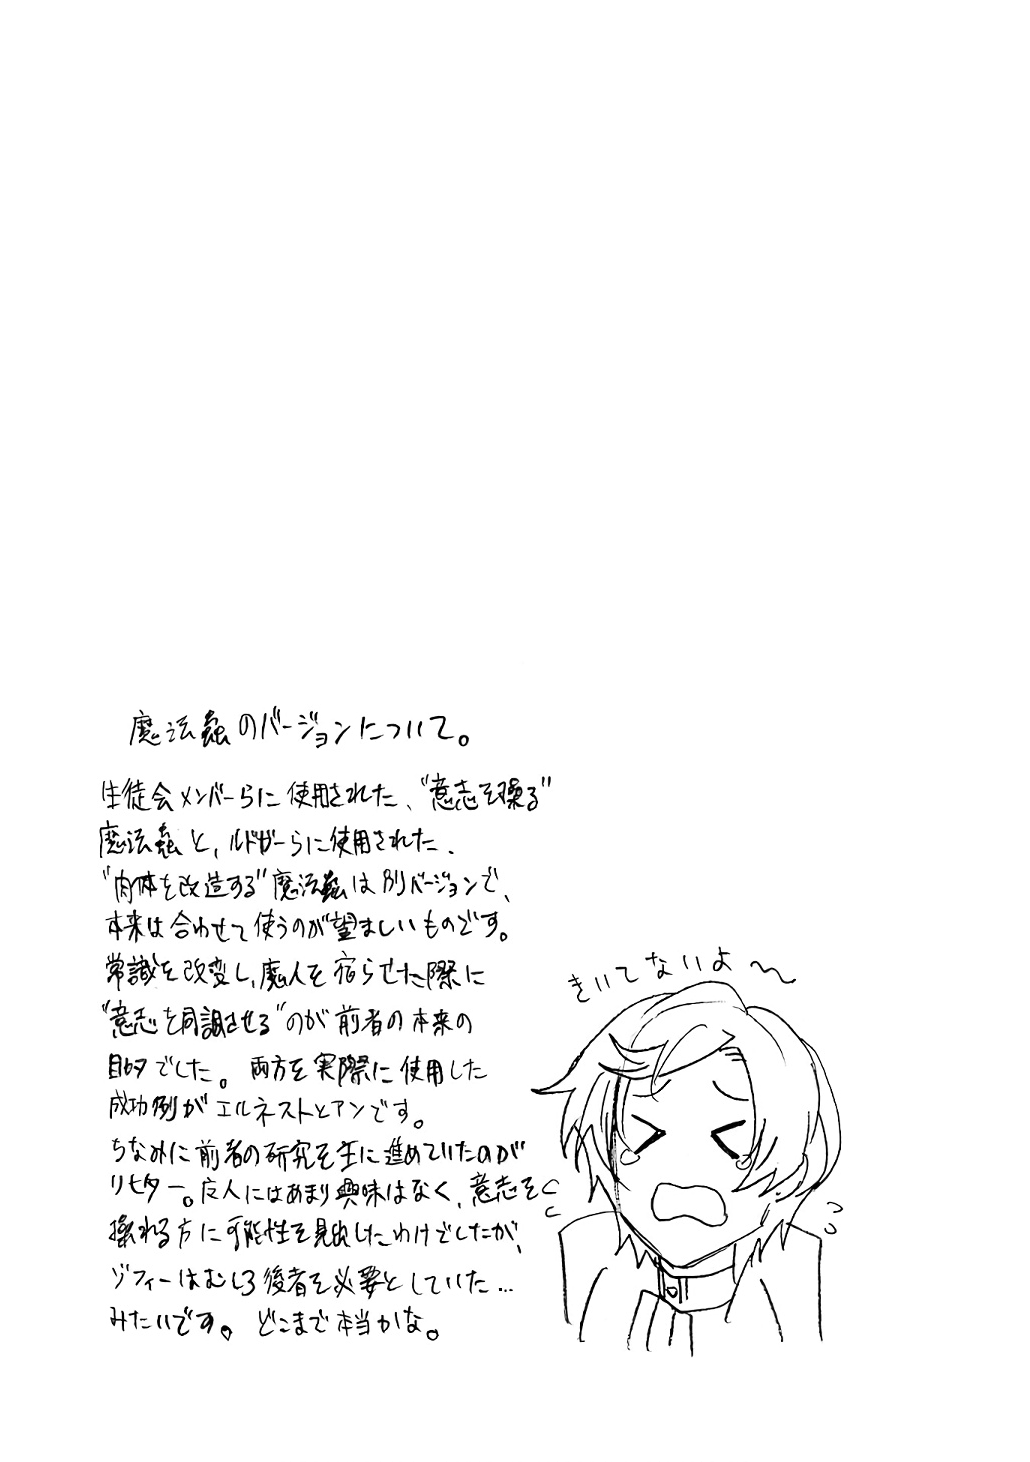 魔法蟲のバージョンについて。
生徒会メンバーらに使用された、“意志を操る”
魔法蟲と、ルドガーらに使用された、
“肉体を改造する”魔法蟲は別バージョンで、
本来は合わせて使うのが望ましいものです。
常識を改変し、魔人を宿らせた際に
“意志を同調させる”のが前者の本来の
目的でした。両方を実際に使用した
成功例がエルネストとアンです。
ちなみに前者の研究を主に進めていたのが
リセター。魔人にはあまり興味はなく、意志を
操れる方に可能性を見出したわけでしたが、
ゾフィーはむしろ後者を必要としていた…
みたいです。どこまで本当かな。
きいてないよ〜